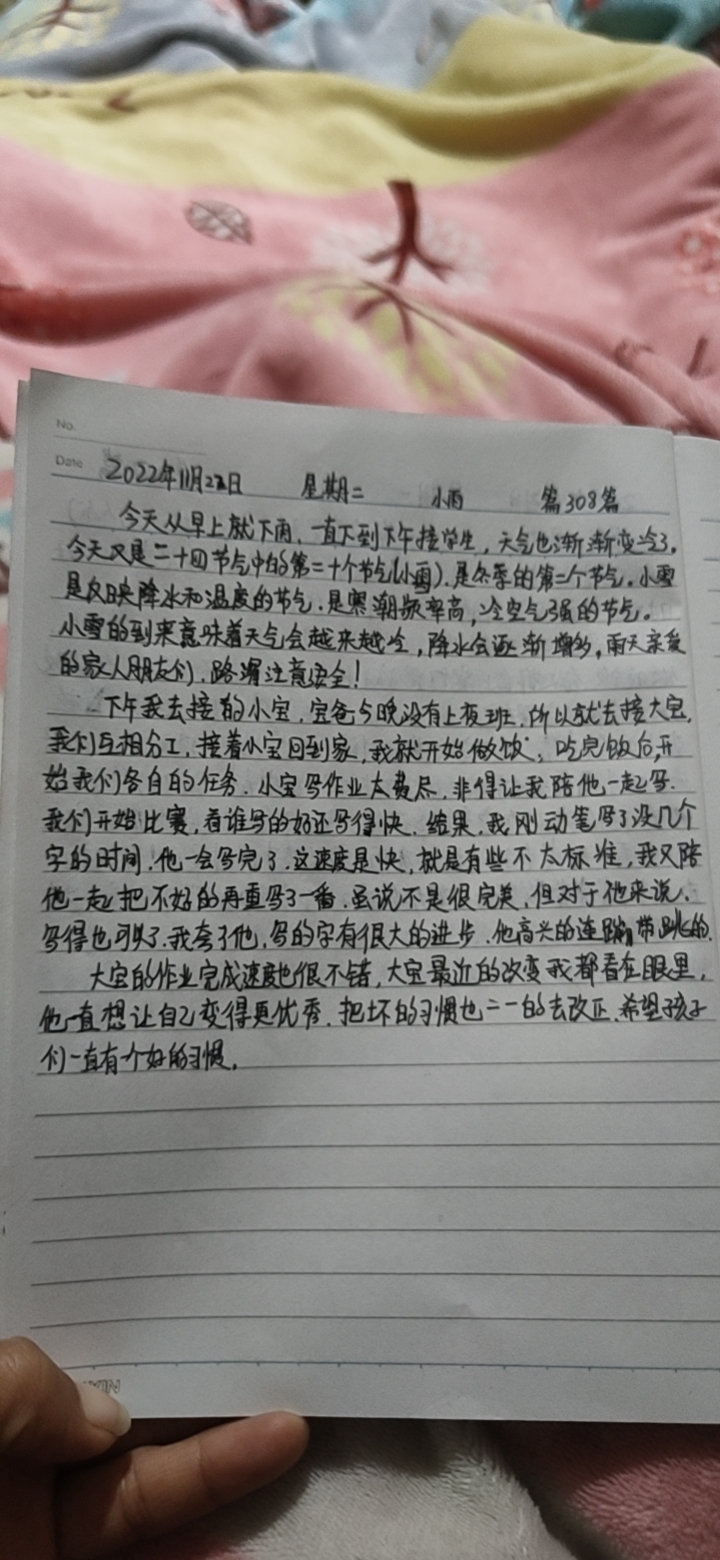 No.
Date 2022年11月22日 星期二 小雨 篇308篇
今天从早上就下雨,一直下到下午接学生,天气也渐渐变冷了,
今天又是二十四节气中的第二十个节气(小雪),是冬季的第二个节气。小雪
是反映降水和温度的节气,是寒潮频率高,冷空气强的节气。
小雪的到来意味着天气会越来越冷,降水会逐渐增多,雨天亲爱
的家人朋友们,路滑注意安全!
下午我去接的小宝,宝爸今晚没有上夜班,所以就去接大宝,
我们互相分工,接着小宝回到家,我就开始做饭,吃完饭后,开
始我们各自的任务,小宝写作业太费尽,非得让我陪他一起写.
我们开始比赛,看谁写的好还写得快,结果,我刚动笔写了没几个
字的时间,他一会写完了,这速度是快,就是有些不太标准,我又陪
他一起把不好的再重写了一番,虽说不是很完美,但对于他来说,
写得也可以了,我夸了他,写的字有很大的进步,他高兴的连蹦带跳的,
大宝的作业完成速度也很不错,大宝最近的改变我都看在眼里,
他一直想让自己变得更优秀,把坏的习惯也一一的去改正,希望孩子
们一直有个好的习惯,